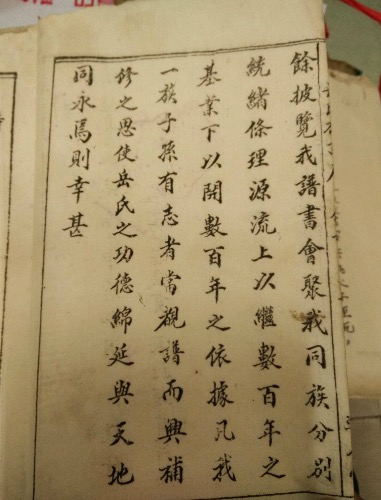 餘披覽我譜書會聚我同族分別
統緒條理源流上以繼數百年之
基業下以開數百年之依據凡我
一族子孫有志者當覩譜而興補
修之思使岳氏之功德綿延與天地
同永焉則幸甚